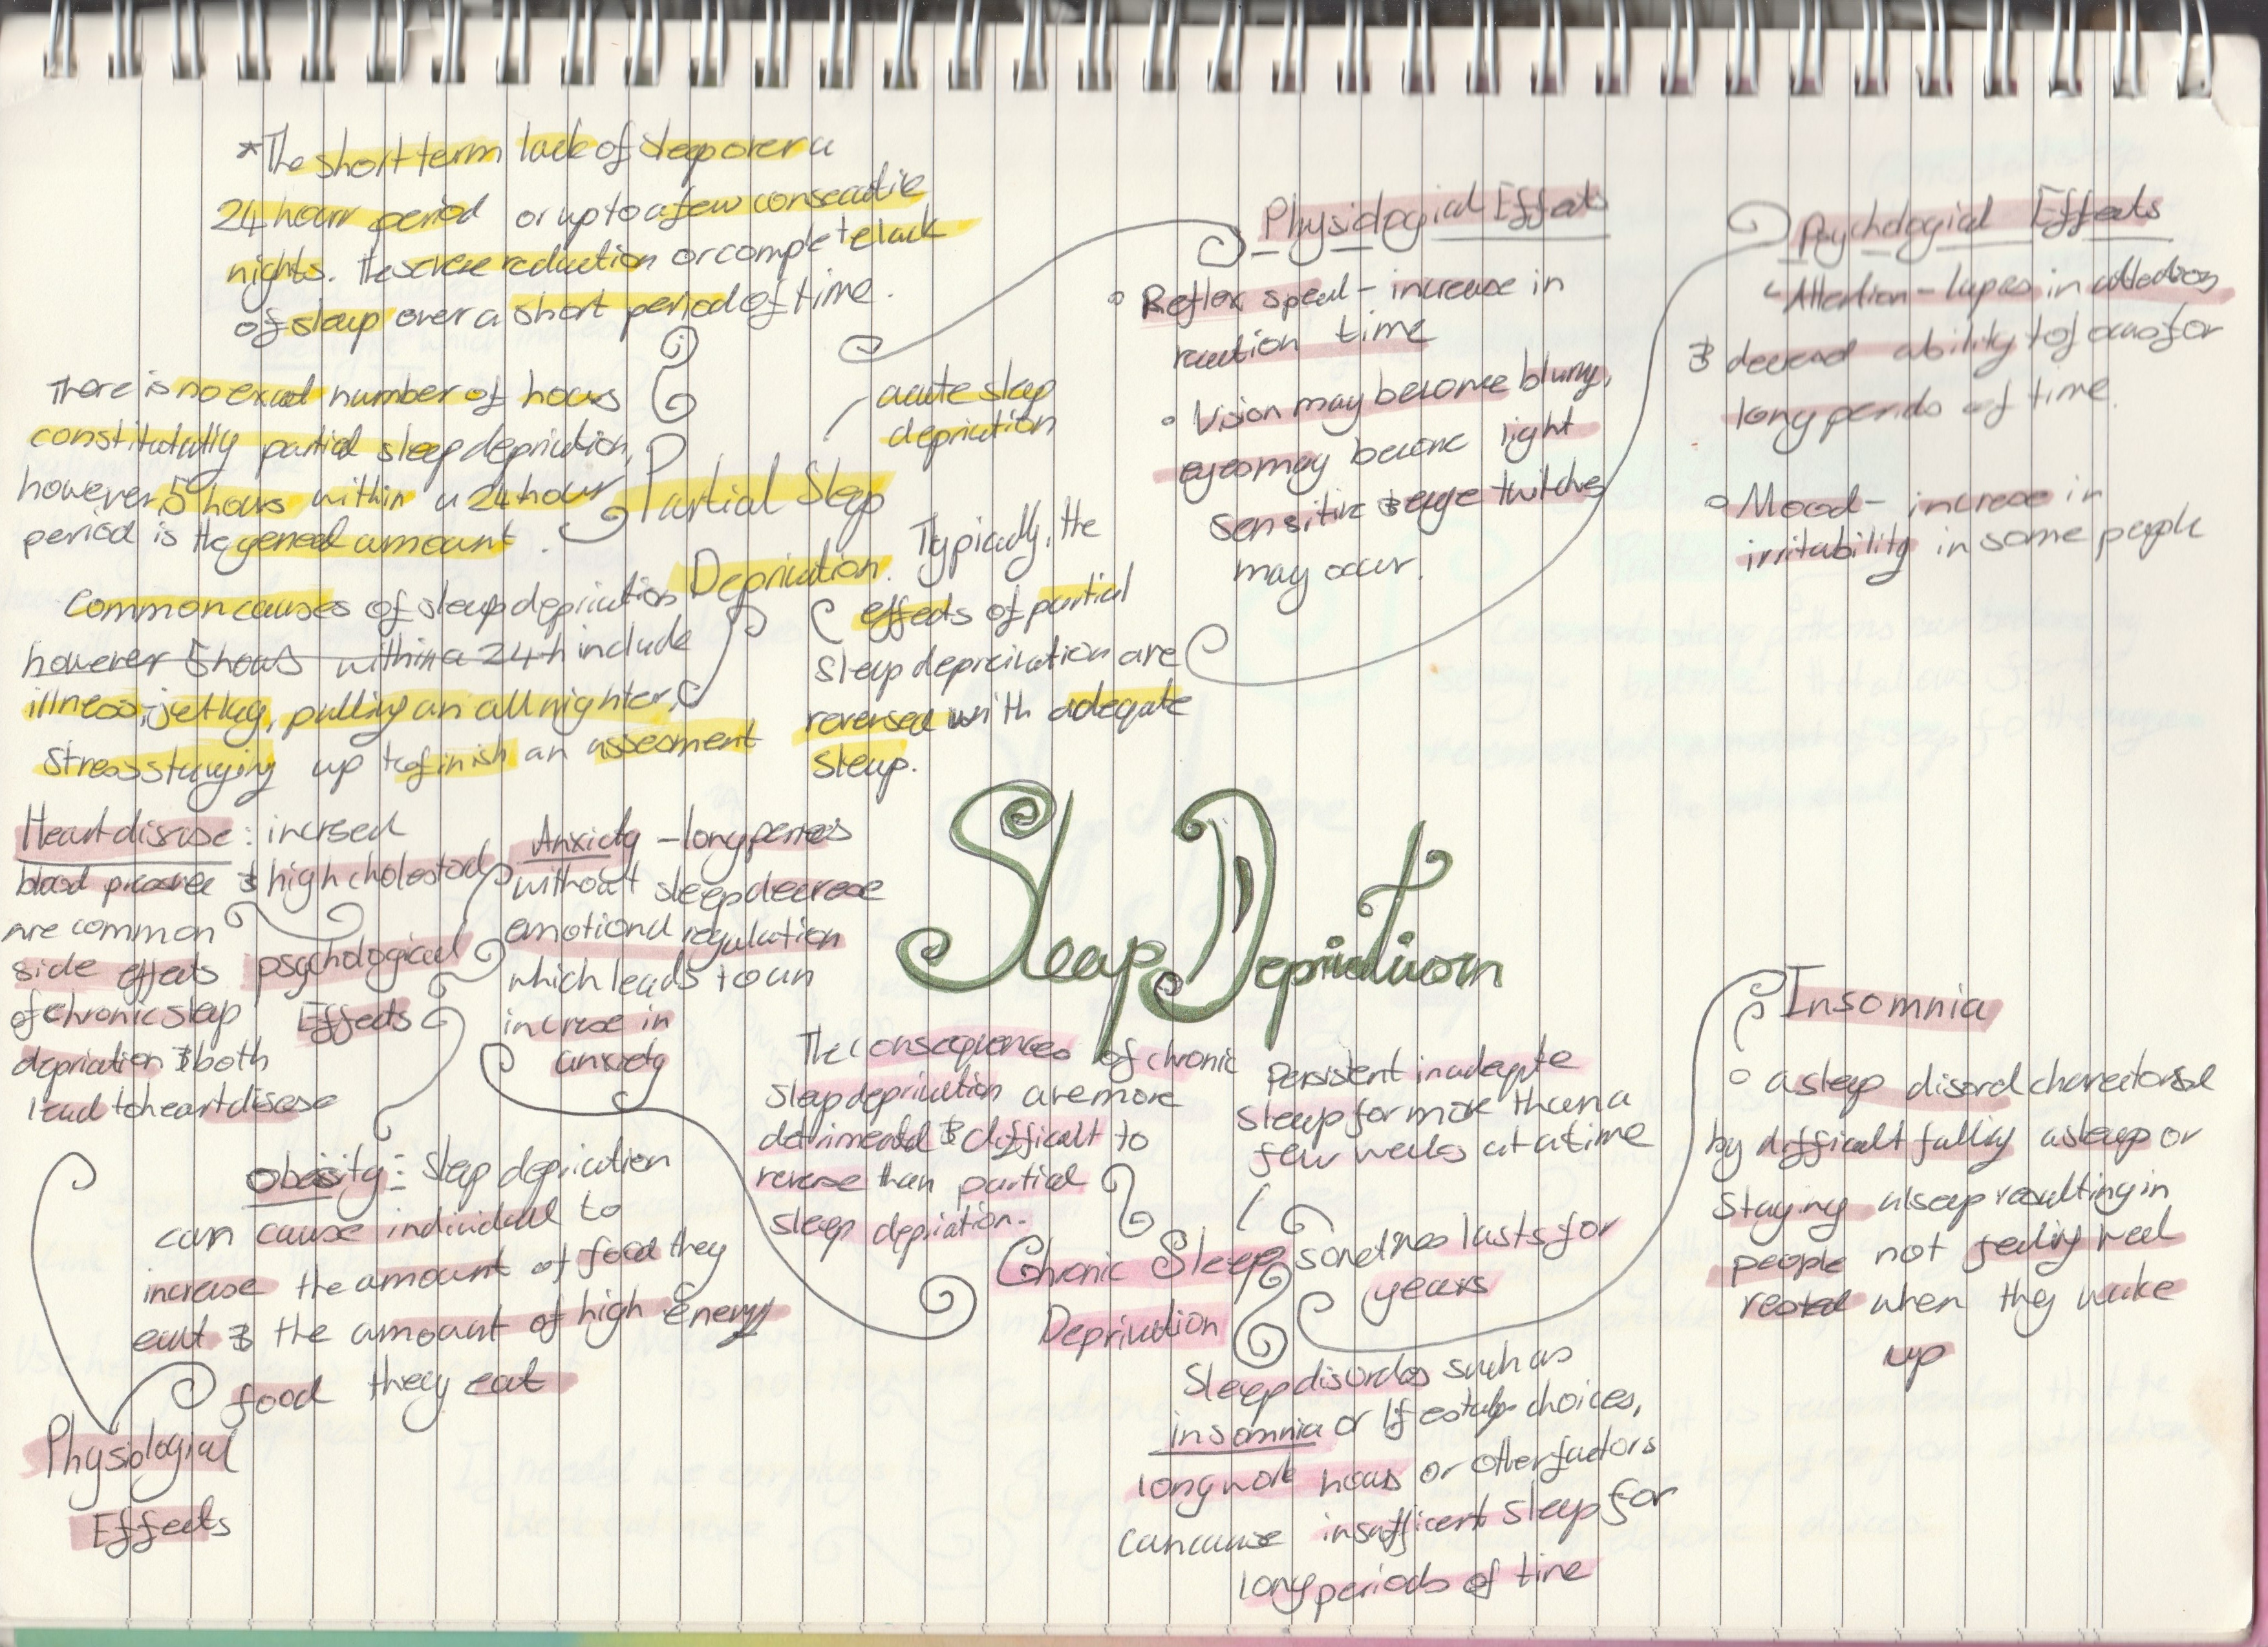 *The short term lack of sleep over a
24 hour period or up to a few consecutie
nights. The severe reduction or complete lack
of sleep over a short period of time.
There is no exact number of hours
constitutatly partial sleep depriation,
however, 5 hours within a 24 hour
period is the general amount.
Common causes of sleep depriation
however 5 hours within a 24 h include
illness, jetlag, pulling an all nighter,
stress staying up to finish an assesment
Partial Sleep
Depriation.
acute sleep
depriation
Typically, the
effects of partial
sleep depreivation are
reversed with adequate
sleep.
Physiological Effects
Reflex speed - increase in
reaction time
Vision may become blurry,
eyes may become light
sensitive & eye twitches
may occur.
Psychological Effects
Attention - lapses in attention
& decreased ability to focus for
long periods of time.
Mood - increase in
irritability in some people
Sleep Deprivation
Heart disease: incresed
blood pressure & high cholesterol
are common
side effects
of chronic sleep
depriation & both
lead to heart disease
psychological
Effects
Anxiety - long periods
without sleep decrease
emotional regulation
which leads to an
increase in
anxiety
obesity: sleep depriation
can cause individual to
increase the amount of food they
eat & the amount of high energy
food they eat
Physiological
Effects
The consequences of chronic
sleep deprivation are more
detrimental & difficult to
reverse than partial
sleep depriation.
Persistent inadequte
sleep for more than a
few weeks at a time
Chronic Sleep
Deprivation
sometimes lasts for
years
Sleep disorders such as
insomnia or lifestyle choices,
long work hours or other factors
can cause insufficent sleep for
long periods of time
Insomnia
a sleep disord charectorsed
by difficult falling asleep or
staying alseep resulting in
people not feeling well
rested when they wake
up